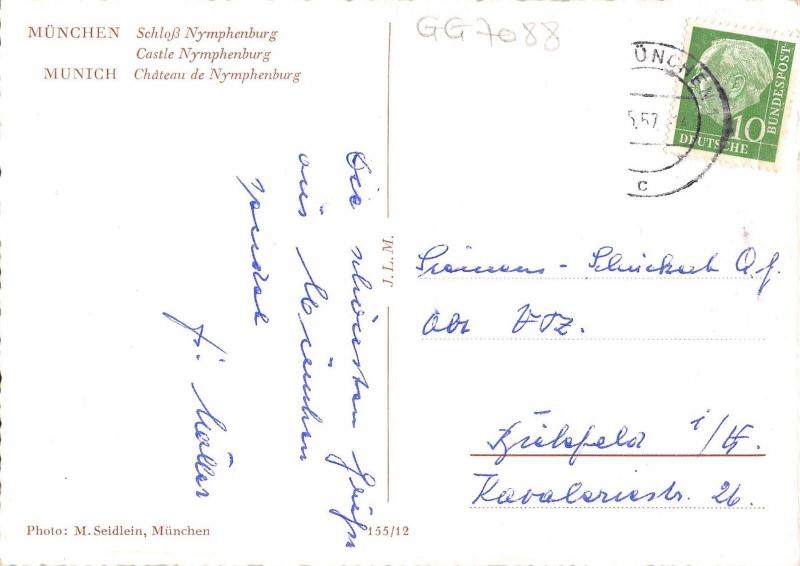 MÜNCHEN Schloß Nymphenburg
Castle Nymphenburg
MUNICH Château de Nymphenburg
GG7088
MÜNCHEN
5.57
c
10
DEUTSCHE
BUNDESPOST
Die schönsten Grüße
aus München
sendet
Müller
T.L.M.
Siemens-Schuckert A.G.
Abt. VTZ.
Bielefeld i/W.
Kavaleriestr. 26.
Photo: M. Seidlein, München
155/12